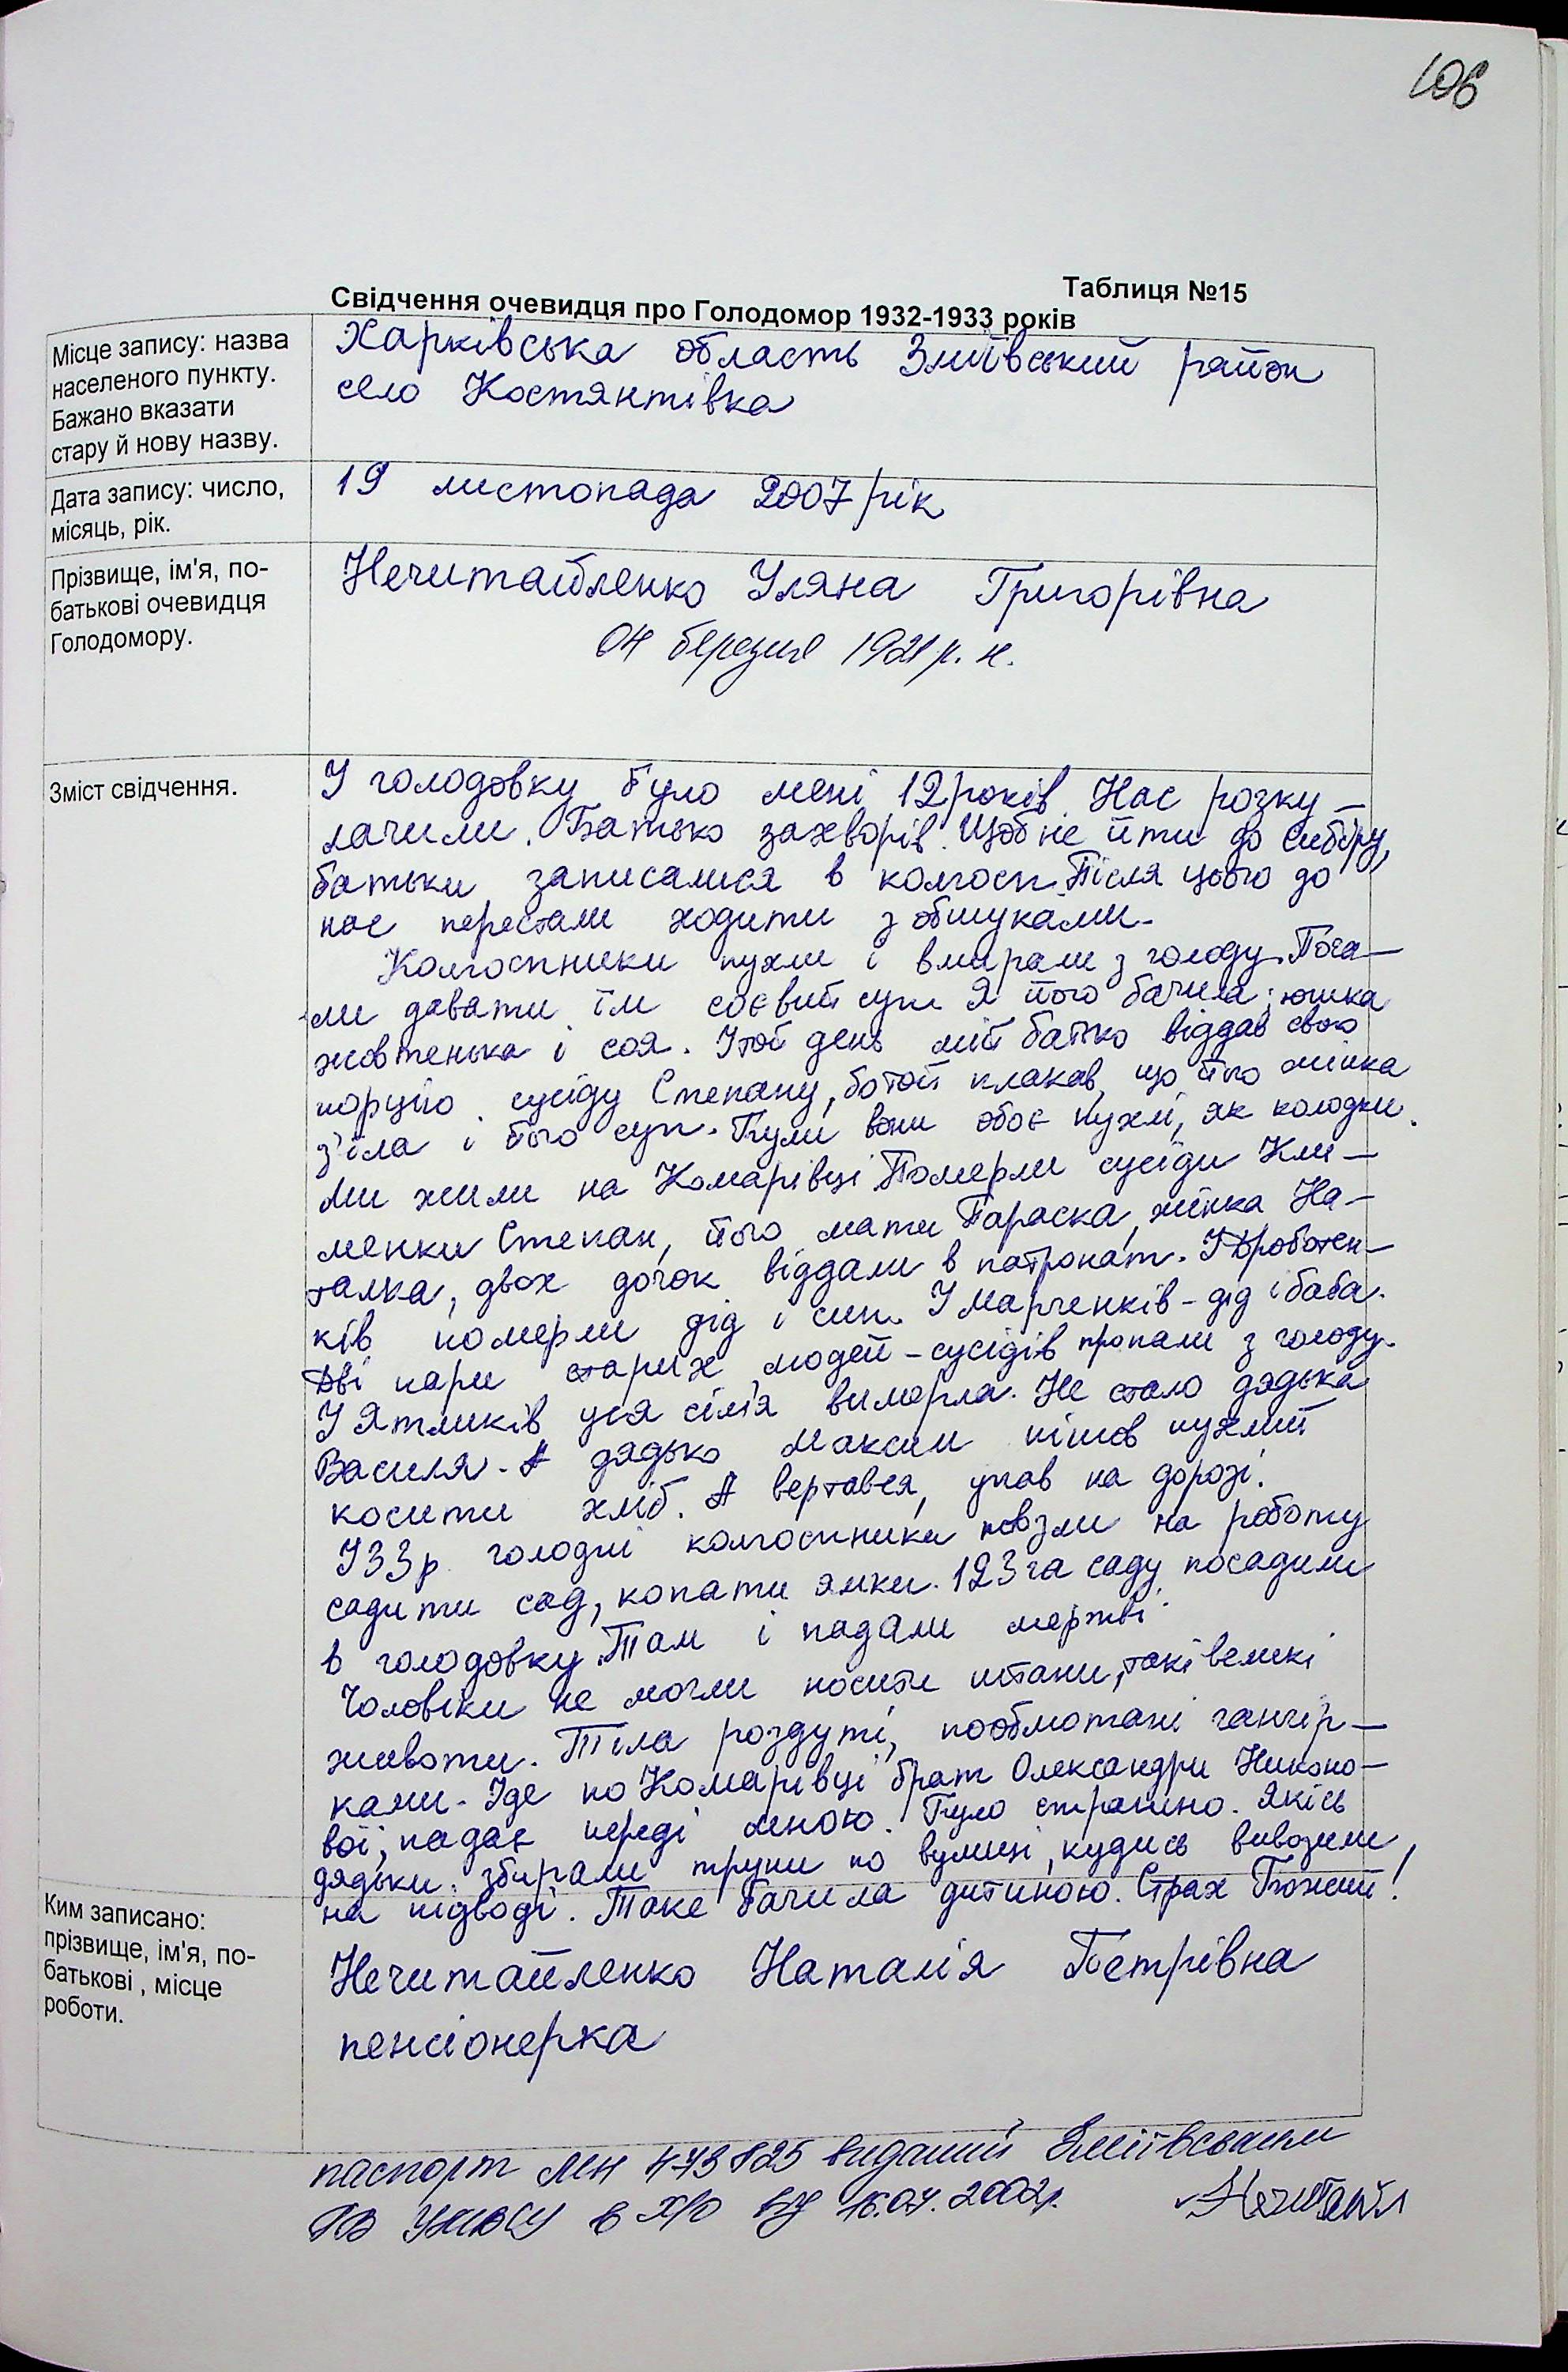 106
Таблиця №15
Свідчення очевидця про Голодомор 1932-1933 років
Місце запису: назва
населеного пункту.
Бажано вказати
стару й нову назву.
Харківська область Зміївський район
село Костянтівка
Дата запису: число,
місяць, рік.
19 листопада 2007 рік
Прізвище, ім'я, по-
батькові очевидця
Голодомору.
Нечитайленко Уляна Григорівна
04 березня 1921 р. н.
Зміст свідчення.
У голодовку було мені 12 років. Нас розку-
лачили. Батько захворів. Щоб не йти до Сибіру,
батьки записалися в колгосп. Після цього до
нас перестали ходити з обшуками.
Колгоспники пухли і вмирали з голоду. Поча-
ли давати їм соєвий суп. Я його бачила: юшка
жовтенька і соя. У той день мій батько віддав свою
порцію сусіду Степану, бо той плакав, що його жінка
з'їла і його суп. Були вони обоє пухлі, як колодки.
Ми жили на Комарівці. Померли сусіди Кли-
менки Степан, його мати Параска, жінка На-
талка, двох дочок віддали в патронат. У Дроботен-
ків померли дід і син. У Марченків - дід і баба.
Дві пари старих людей - сусідів пропали з голоду.
У Ятликів уся сім'я вимерла. Не стало дядька
Василя. А дядько Максим пішов пухлий
косити хліб. А вертався, упав на дорозі.
У 33 р. голодні колгоспники повзли на роботу
садити сад, копати ямки. 123 га саду посадили
в голодовку. Там і падали мертві.
Чоловіки не могли носити штани, такі великі
животи. Тіла роздуті, пообмотані ганчір-
ками. Іде по Комарівці брат Олександри Никоно-
вої, падає переді мною. Було страшно. Якісь
дядьки збирали трупи по вулиці, кудись вивозили
на підводі. Таке бачила дитиною. Страх Божий!
Ким записано:
прізвище, ім'я, по-
батькові , місце
роботи.
Нечитайленко Наталія Петрівна
пенсіонерка
паспорт МН 473825 виданий Зміївським
РВ УМВСУ в Х/о 16.07.2002р. Нечитайл